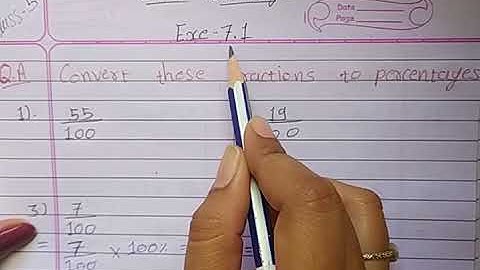 Class-5
Date
Page
Exe-7.1
Q.A Convert these fractions to percentages
1). 55/100 19
3) 7/100
= 7/100 × 100% = =